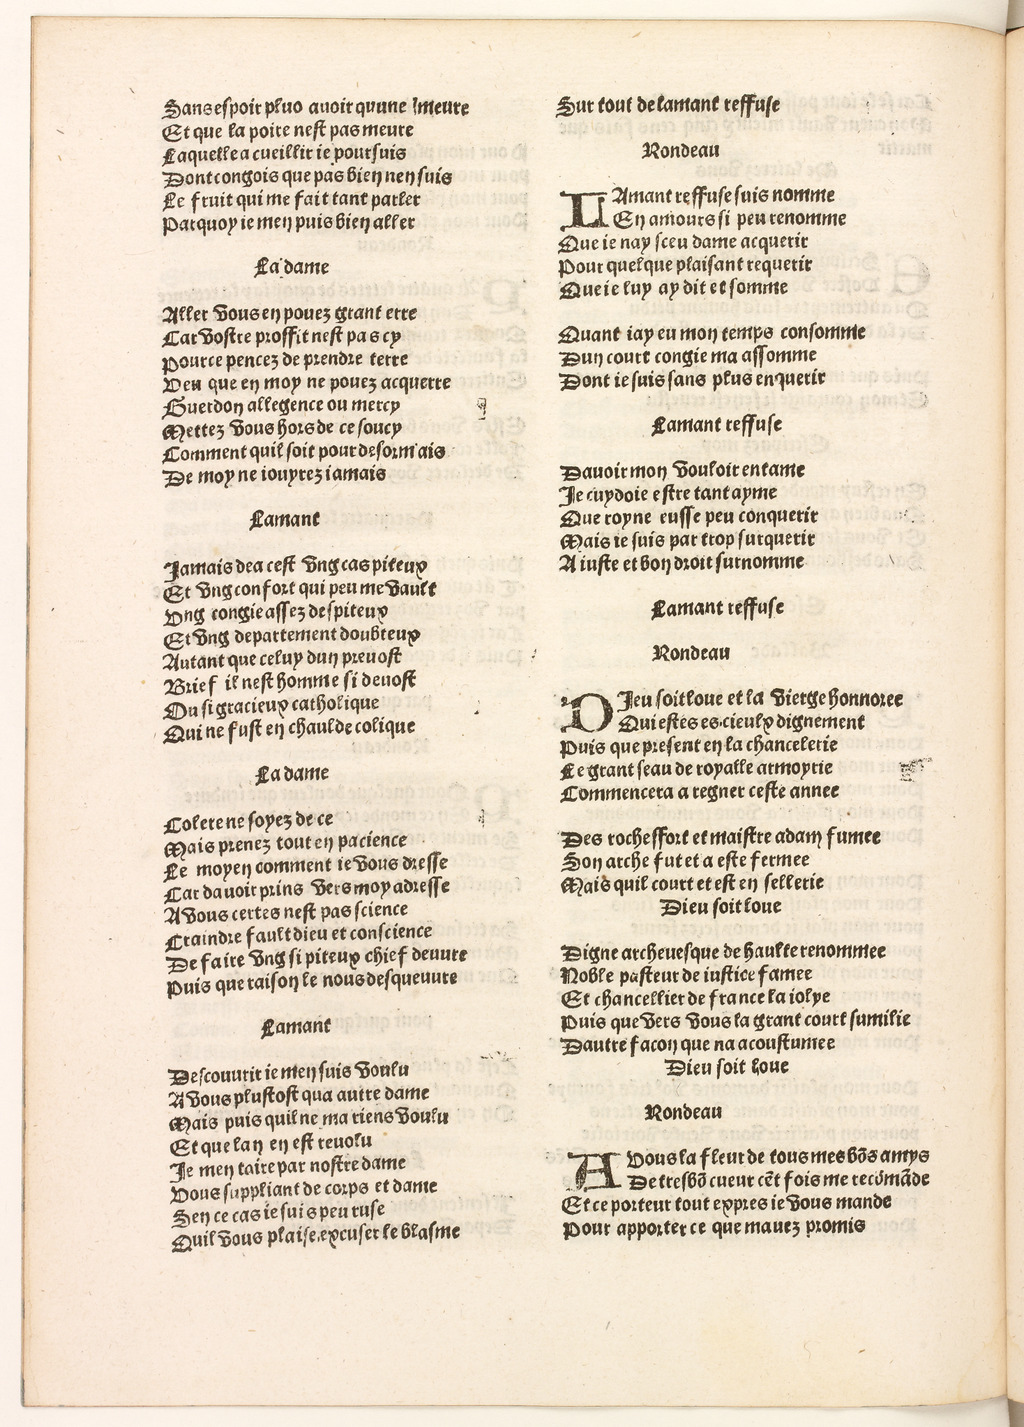 Sans espoir pluo auoir quune lmeure
Et que la poire nest pas meure
Laquelle a cueillir ie poursuis
Dont congois que pas bien nen suis
Le fruit qui me fait tant parler
Parquoy ie men puis bien aller
La dame
Aller vous en pouez grant erre
Car vostre proffit nest pas cy
Pource pencez de prendre terre
Veu que en moy ne pouez acquerre
Guerdon allegence ou mercy
Mettez vous hors de ce soucy
Comment quil soit pour desormais
De moy ne iouyrez iamais
Lamant
Jamais dea cest vng cas piteux
Et vng confort qui peu me vault
Vng congie assez despiteux
Et vng departement doubteux
Autant que celuy dun preuost
Brief il nest homme si deuost
Ou si gracieux catholique
Qui ne fust en chaulde colique
La dame
Colere ne soyez de ce
Mais prenez tout en pacience
Le moyen comment ie vous dresse
Car dauoir prins vers moy adresse
A vous certes nest pas science
Craindre fault dieu et conscience
De faire vng si piteux chief deuure
Puis que raison le nous desqueuure
Lamant
Descouurir ie men suis voulu
A vous plustost qua autre dame
Mais puis quil ne ma riens voulu
Et que lan en est reuolu
Je men taire par nostre dame
Vous suppliant de corps et dame
Sen ce cas ie suis peu ruse
Quil vous plaise excuser le blasme
Sur tout de lamant reffuse
Rondeau
LAmant reffuse suis nomme
En amours si peu renomme
Que ie nay sceu dame acquerir
Pour quelque plaisant requerir
Que ie luy ay dit et somme
Quant iay eu mon temps consomme
Dun court congie ma assomme
Dont ie suis sans plus enquerir
Lamant reffuse
Dauoir mon vouloir entame
Je cuydoie estre tant ayme
Que royne eusse peu conquerir
Mais ie suis par trop surquerir
A iuste et bon droit surnomme
Lamant reffuse
Rondeau
DIeu soit loue et la vierge honnoree
Qui estes es cieulx dignement
Puis que present en la chancelerie
Le grant seau de royalle armoyrie
Commencera a regner ceste annee
Des rocheffort et maistre adam fumee
Son arche fut et a este fermee
Mais quil court et est en sellerie
Dieu soit loue
Digne archeuesque de haulte renommee
Noble pasteur de iustice famee
Et chancellier de france la iolye
Puis que vers vous la grant court sumilie
Dautre facon que na acoustumee
Dieu soit loue
Rondeau
A Vous la fleur de tous mes bōs amys
De tresbō cueur cēt fois me recōmāde
Et ce porteur tout expres ie vous mande
Pour apporter ce que mauez promis